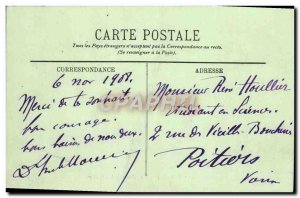 CARTE POSTALE
Tous les Pays étrangers n'acceptent pas la Correspondance au recto.
(Se renseigner à la Poste).
CORRESPONDANCE
ADRESSE
6 nov 1908.
Merci de ta
bon courage.
bons baisers de nous deux.
Monsieur René Houllier
Étudiant en Sciences
2 rue de Vieille
Poitiers